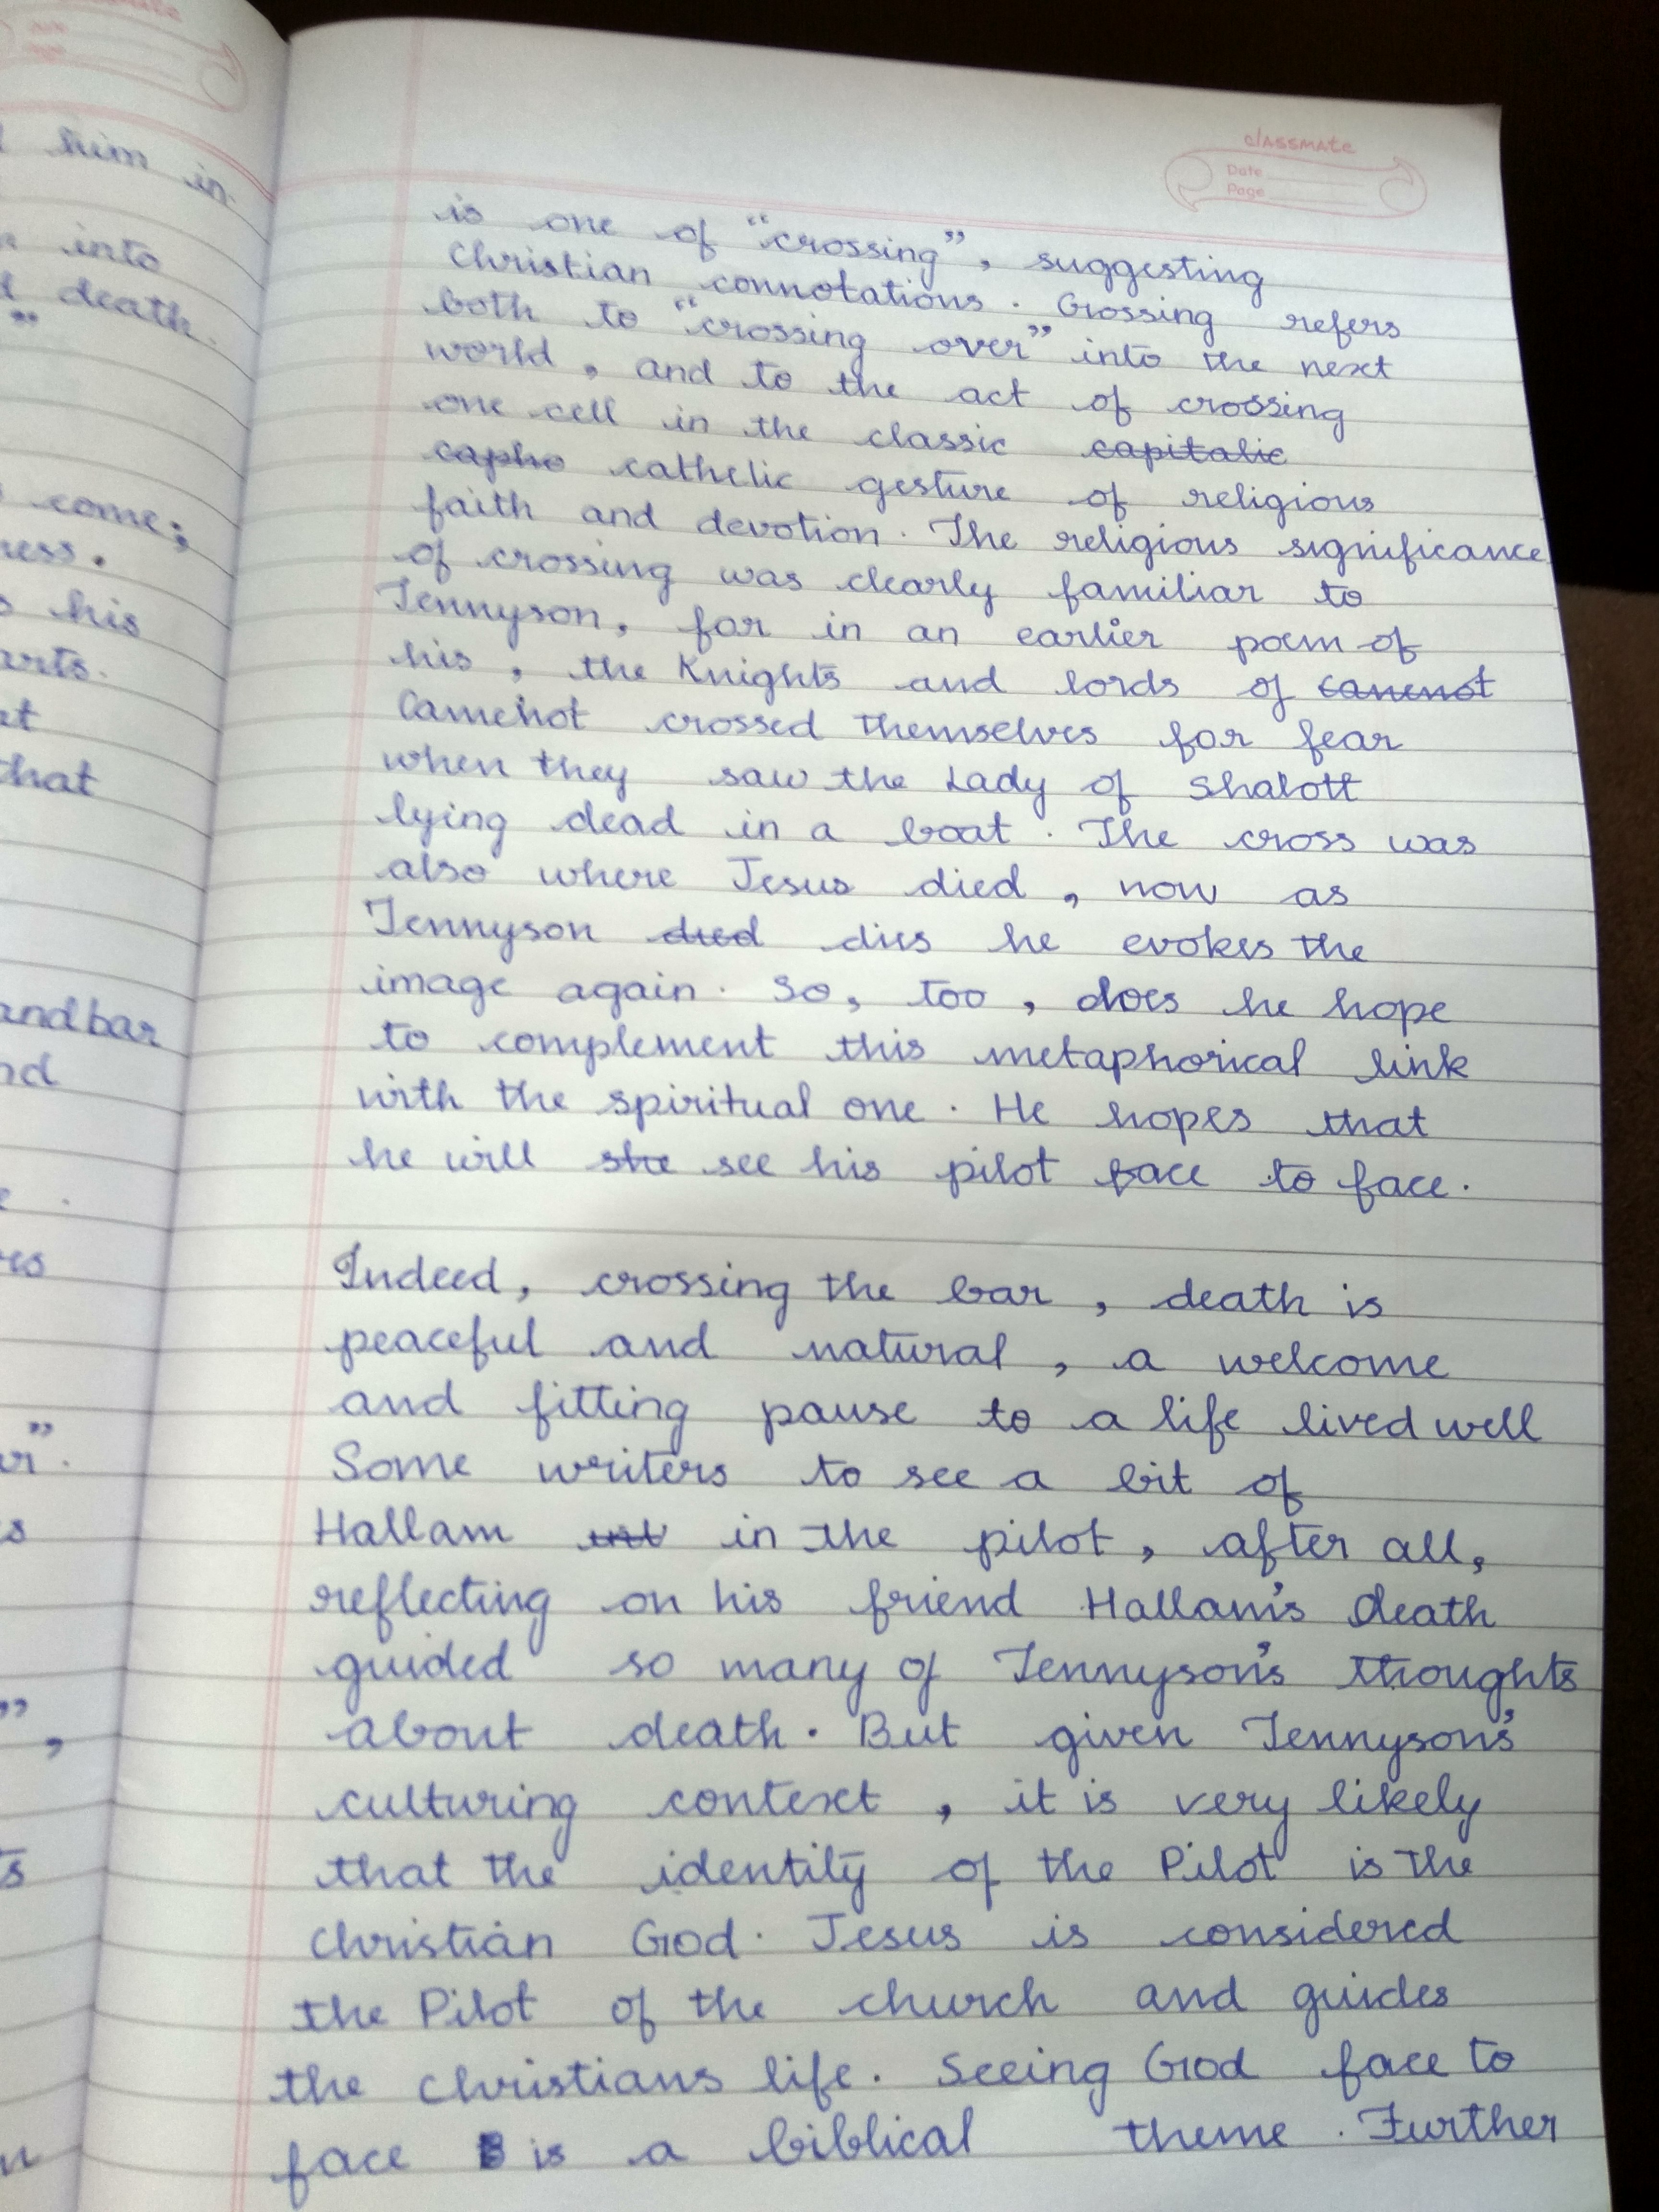 classmate
Date
Page
him in
into
death.
come;
ress.
his
arts.
at
that
andbar
nd
is one of "crossing", suggesting
Christian connotations. Crossing refers
both to "crossing over" into the next
world, and to the act of crossing
one cell in the classic capitalic
capho cathelic gesture of religious
faith and devotion. The religious significance
of crossing was clearly familiar to
Tennyson, for in an earlier poem of
his, the Knights and lords of
Camehot crossed themselves for fear
when they saw the Lady of Shalott
lying dead in a boat. The cross was
also where Jesus died, now as
Tennyson died dies he evokes the
image again. So, too, does he hope
to complement this metaphorical link
with the spiritual one. He hopes that
he will she see his pilot face to face.
Indeed, crossing the bar, death is
peaceful and natural, a welcome
and fitting pause to a life lived well
Some writers to see a bit of
Hallam in the pilot, after all,
reflecting on his friend Hallam's death
guided so many of Tennyson's thoughts
about death. But given Tennyson's
culturing context, it is very likely
that the identity of the Pilot is the
Christian God. Jesus is considered
the Pilot of the church and guides
the christians life. Seeing God face to
face is a biblical theme. Further